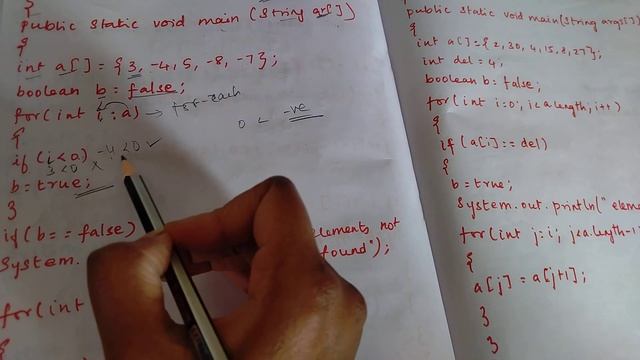 }
public static void main (String ar[])
{
int a[] = {3, -4, 5, -8, -7};
boolean b = false;
for(int i : a) → for-each
0 < -ve
{
if (i<a) -4<0 ✓
3<0 x
b = true;
}
if(b == false)
System. elements not
found");
for(int
{
public static void main(String args[])
{
int a[] = {2, 30, 4, 15, 8, 27};
int del = 4;
boolean b = false;
for(int i=0; i<a.length; i++)
{
if (a[i] == del)
{
b = true;
System.out.println("eleme
for(int j=i; j<a.length-1
{
a[j] = a[j+1];
}
}